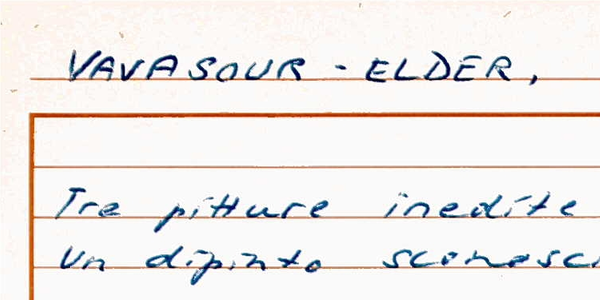 VAVASOUR - ELDER,
Tre pitture inedite
Un dipinto sconosci